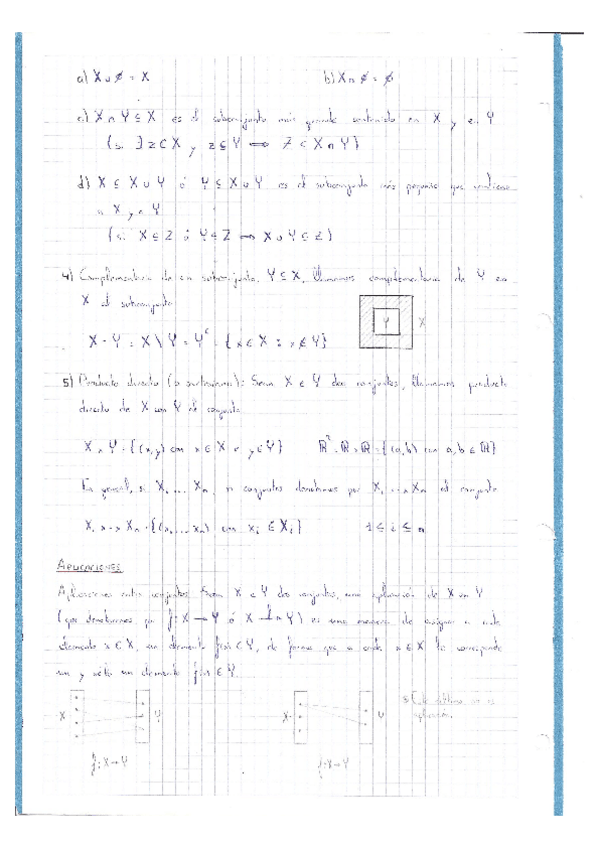 a) X ∪ ∅ = X b) X ∩ ∅ = ∅
c) X ∩ Y ⊆ X es el subconjunto más grande contenido en X y en Y
(si Z ⊆ X y Z ⊆ Y ⟹ Z ⊆ X ∩ Y)
d) X ⊆ X ∪ Y ó Y ⊆ X ∪ Y es el subconjunto más pequeño que contiene
a X y a Y
(si X ⊆ Z ó Y ⊆ Z ⟹ X ∪ Y ⊆ Z)
4) Complementario de un subconjunto. Y ⊆ X, llamamos complementario de Y en
X al subconjunto
Y X
X - Y = X \ Y = Yᶜ = {x ∈ X : x ∉ Y}
5) Producto directo (o cartesiano): Sean X e Y dos conjuntos, llamamos producto
directo de X con Y al conjunto
X × Y = {(x,y) con x ∈ X e y ∈ Y} ℝ² = ℝ × ℝ = {(a,b) con a,b ∈ ℝ}
En general, si X₁ ... Xₙ, n conjuntos denotamos por X₁ ... × Xₙ al conjunto
X₁ × ... × Xₙ = {(x₁ ... xₙ) con xᵢ ∈ Xᵢ} 1 ≤ i ≤ n
APLICACIONES
Aplicaciones entre conjuntos. Sean X e Y dos conjuntos, una aplicación de X en Y
(que denotaremos por f: X → Y ó X →f Y) es una manera de asignar a cada
elemento x ∈ X, un elemento f(x) ∈ Y, de forma que a cada x ∈ X le corresponde
un y sólo un elemento f(x) ∈ Y.
X Y X Y
no es
aplicación.
f: X → Y f: X → Y